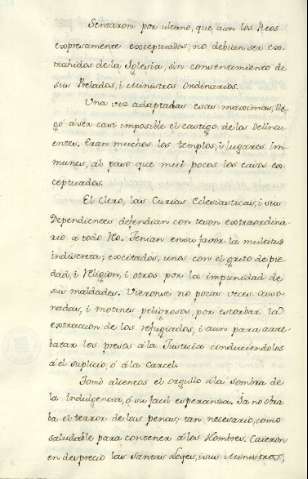 Sentaron por ultimo, que aun los Reos
expresamente exceptuados, no debian ser ex-
trahidos de la Iglesia, sin consentimiento de
sus Prelados, i Ministros Ordinarios.
Una vez adaptadas estas maximas, lle-
gó a ser casi imposible el castigo de los Delinq-
uentes. Eran muchos los templos, i lugares im-
munes, al paso que mui pocos los casos ex-
ceptuados.
El Clero, las Curias Eclesiasticas, i sus
Dependientes defendian con teson extraordina-
rio a todo Reo. Tenian en su favor la multitud
indiscreta; excitados, unos con el grito de pie-
dad, i Religion, i otros por la impunidad de
sus maldades. Vieronse no pocas veces
motines peligrosos, por estorbar la
extraccion de los refugiados, i aun para arre-
batar los presos a la Justicia conduciendolos
á el suplicio, ó a la Carcel.
Tomó alientos el orgullo a la sombra de
la indulgencia, ó su facil esperanza. Ya no obra-
ba el terror de las penas; tan necesario, como
saludable para contener á los Hombres. Caieron
en desprecio las Santas Leyes, sus Ministros,